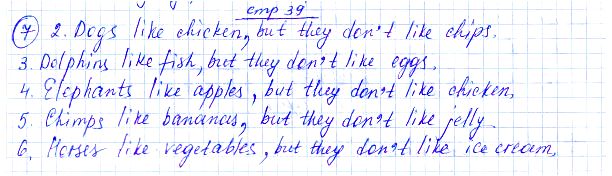 стр 39
7 2. Dogs like chicken, but they don't like chips.
3. Dolphins like fish, but they don't like eggs.
4. Elephants like apples, but they don't like chicken.
5. Chimps like bananas, but they don't like jelly.
6. Horses like vegetables, but they don't like ice cream.